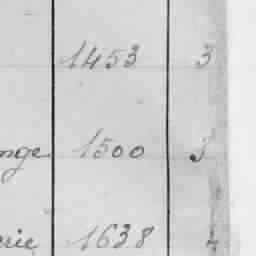 1453 3
nge 1500 3
rie 1638 4